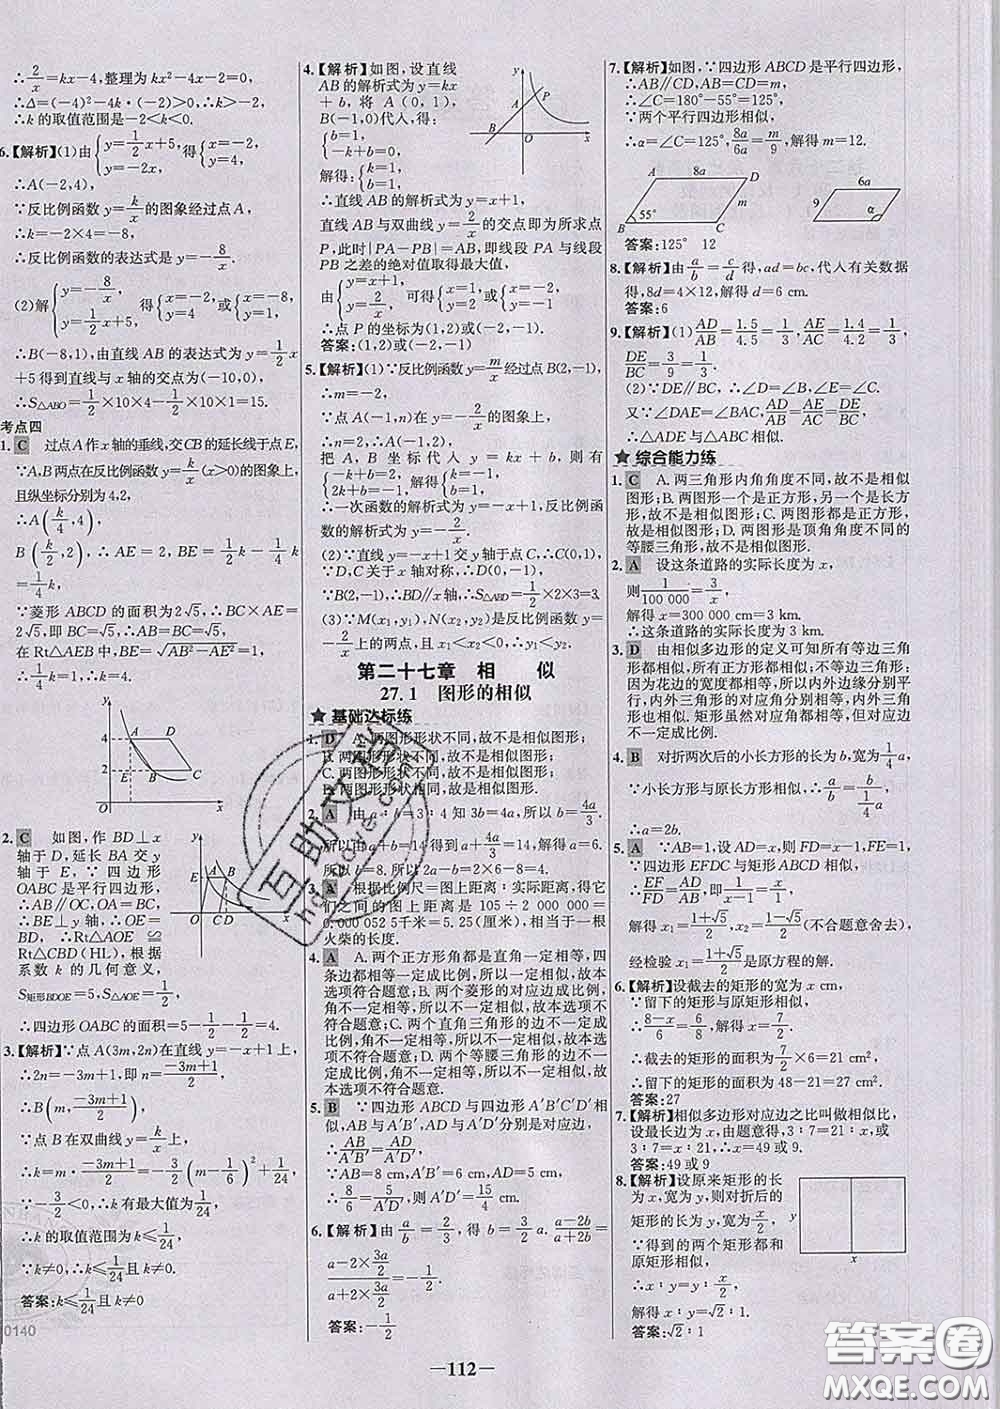 ∴2/x=kx-4,整理为kx²-4x-2=0,
∴Δ=(-4)²-4k·(-2)>0,∴k>-2,
∴k的取值范围是-2<k<0.
6.【解析】(1)由{y=1/2x+5, y=-2x, 得{x=-2, y=4,
∴A(-2,4),
∵反比例函数y=k/x的图象经过点A,
∴k=-2×4=-8,
∴反比例函数的表达式是y=-8/x.
(2)解{y=-8/x, y=1/2x+5, 得{x=-2, y=4 或{x=-8, y=1,
∴B(-8,1),由直线AB的表达式为y=1/2x
+5得到直线与x轴的交点为(-10,0),
∴S△ABO=1/2×10×4-1/2×10×1=15.
考点四
1. C 过点A作x轴的垂线,交CB的延长线于点E,
∵A,B两点在反比例函数y=k/x(x>0)的图象上,
且纵坐标分别为4,2,
∴A(k/4,4),
B(k/2,2),∴AE=2,BE=1/2k-1/4k=
1/4k,
∵菱形ABCD的面积为2√5,∴BC×AE=
2√5,即BC=√5,∴AB=BC=√5,
在Rt△AEB中,BE=√(AB²-AE²)=1,
∴1/4k=1,∴k=4.
y
4 A D
2 E B C
O x
2. C 如图,作BD⊥x
轴于D,延长BA交y
轴于E,∵四边形
OABC是平行四边形,
∴AB∥OC,OA=BC,
∴BE⊥y轴,∴OE=
BD,∴Rt△AOE≌
Rt△CBD(HL),根据
系数k的几何意义,
S矩形BDOE=5,S△AOE=1/2,
∴四边形OABC的面积=5-1/2-1/2=4.
y
E A B
O C D x
3.【解析】∵点A(3m,2n)在直线y=-x+1上,
∴2n=-3m+1,即n=(-3m+1)/2,
∴B(m,(-3m+1)/2),
∵点B在双曲线y=k/x上,
∴k=m·(-3m+1)/2=-3/2(m-1/6)²+1/24,
∵-3/2<0,∴k有最大值为1/24,
∴k的取值范围为k≤1/24,
∵k≠0,∴k≤1/24且k≠0.
答案:k≤1/24且k≠0
0140
4.【解析】如图,设直线
AB的解析式为y=kx
+b,将A(0,1),
B(-1,0)代入,得:
{b=1, -k+b=0,
解得:{k=1, b=1,
y
A P
B O x
∴直线AB的解析式为y=x+1,
直线AB与双曲线y=2/x的交点即为所求点
P,此时|PA-PB|=AB,即线段PA与线段
PB之差的绝对值取得最大值,
由{y=x+1, y=2/x, 可得{x=1, y=2 或{x=-2, y=-1,
∴点P的坐标为(1,2)或(-2,-1).
答案:(1,2)或(-2,-1)
5.【解析】(1)∵反比例函数y=m/x经过点B(2,-1),
∴m=-2,
∵点A(-1,n)在y=-2/x的图象上,
∴n=2,∴A(-1,2),
把A,B坐标代入y=kx+b,则有
{-k+b=2, 2k+b=-1, 解得{k=-1, b=1,
∴一次函数的解析式为y=-x+1,反比例
函数的解析式为y=-2/x.
(2)∵直线y=-x+1交y轴于点C,∴C(0,1),
∵D,C关于x轴对称,∴D(0,-1),
∵B(2,-1),∴BD∥x轴,∴S△ABD=1/2×2×3=3.
(3)∵M(x₁,y₁),N(x₂,y₂)是反比例函数y=
-2/x上的两点,且x₁<x₂<0,∴y₁<y₂.
第二十七章 相 似
27.1 图形的相似
★基础达标练
1. D A.两图形形状不同,故不是相似图形;
B.两图形形状不同,故不是相似图形;
C.两图形形状不同,故不是相似图形;
2. A 由a∶b=3∶4知3b=4a,所以b=4a/3.
所以由a+b=14得到a+4a/3=14,解得a=6.
所以b=8.所以2a-b=2×6-8=4.
3. A 根据比例尺=图上距离∶实际距离,得它
们之间的图上距离是105÷2 000 000=
0.000 052 5千米=5.25(厘米),相当于一根
火柴的长度.
4. A A.两个正方形角都是直角一定相等,四
条边都相等一定成比例,所以一定相似,故本
选项符合题意;B.两个菱形的对应边成比例,
角不一定相等,所以不一定相似,故本选项不
符合题意;C.两个直角三角形的边不一定成
比例,角不一定相等,所以不一定相似,故本选
项不符合题意;D.两个等腰三角形的边不一
定成比例,角不一定相等,所以不一定相似,故
本选项不符合题意.
5. B ∵四边形ABCD与四边形A′B′C′D′相
似,AB与A′B′,AD与A′D′分别是对应边,
∴AB/A′B′=AD/A′D′,
∵AB=8 cm,A′B′=6 cm,AD=5 cm,
∴8/6=5/A′D′,则A′D′=15/4 cm.
6.【解析】由a/b=2/3,得b=3/2a.(a-2b)/(a+2b)=
(a-2×3a/2)/(a+2×3a/2)=-1/2.
答案:-1/2
7.【解析】如图,∵四边形ABCD是平行四边形,
∴AB∥CD,AB=CD=m,
∴∠C=180°-55°=125°,
∵两个平行四边形相似,
∴α=∠C=125°,8a/6a=m/9,解得m=12.
A 8a D
m
55°
B C
6a
9 α
答案:125° 12
8.【解析】由a/b=c/d得,ad=bc,代入有关数据
得,8d=4×12,解得d=6 cm.
答案:6
9.【解析】(1)AD/AB=1.5/4.5=1/3,AE/AC=1.4/4.2=1/3,
DE/BC=3/9=1/3.
(2)∵DE∥BC,∴∠D=∠B,∠E=∠C,
又∠DAE=∠BAC,AD/AB=AE/AC=DE/BC,
∴△ADE与△ABC相似.
★综合能力练
1. C A.两三角形内角角度不同,故不是相似
图形;B.两图形一个是正方形,另一个是长方
形,故不是相似图形;C.两图形都是正方形,
故是相似图形;D.两图形是顶角角度不同的
等腰三角形,故不是相似图形.
2. A 设这条道路的实际长度为x,
则1/100 000=3/x,
解得x=300 000 cm=3 km.
∴这条道路的实际长度为3 km.
3. D 由相似多边形的定义可知所有等边三角
形、正方形都相似,所以A,B中内外边缘相
似;因为花边的宽度都相等,所以菱形各内角
相等,内外边对应成比例,C中菱形内外边缘
形也相似.矩形虽然对应角相等但对应边不
一定成比例.
4. B 对折两次后的小长方形的长为b,宽为1/4a,
∵小长方形与原长方形相似,∴a/b=b/(1/4a),
∴a=2b.
5. A ∵AB=1,设AD=x,则FD=x-1,FE=1,
∵四边形EFDC与矩形ABCD相似,
∴EF/FD=AD/AB,即1/(x-1)=x/1,
解得x₁=(1+√5)/2,x₂=(1-√5)/2(不合题意舍去),
经检验x₁=(1+√5)/2是原方程的解.
6.【解析】设截去的矩形的宽为x cm,
∵留下的矩形与原矩形相似,
∴(8-x)/6=6/8,解得:x=7/2,
∴截去的矩形的面积为7/2×6=21 cm²,
∴留下的矩形的面积为48-21=27 cm².
答案:27
7.【解析】相似多边形对应边之比叫做相似比,
设最长边为x,由题意得,3∶7=21∶x,或
3∶7=x∶21,∴x=49或9.
答案:49或9
8.【解析】设原来矩形的长
为x,宽为y,则对折后的
矩形的长为y,宽为x/2,
∵得到的两个矩形都和
原矩形相似,
∴x∶y=y∶x/2,
解得x∶y=√2∶1.
答案:√2∶1
y
x
—112—
互助文档
hdwdve.com
答案圈
MXQE.COM